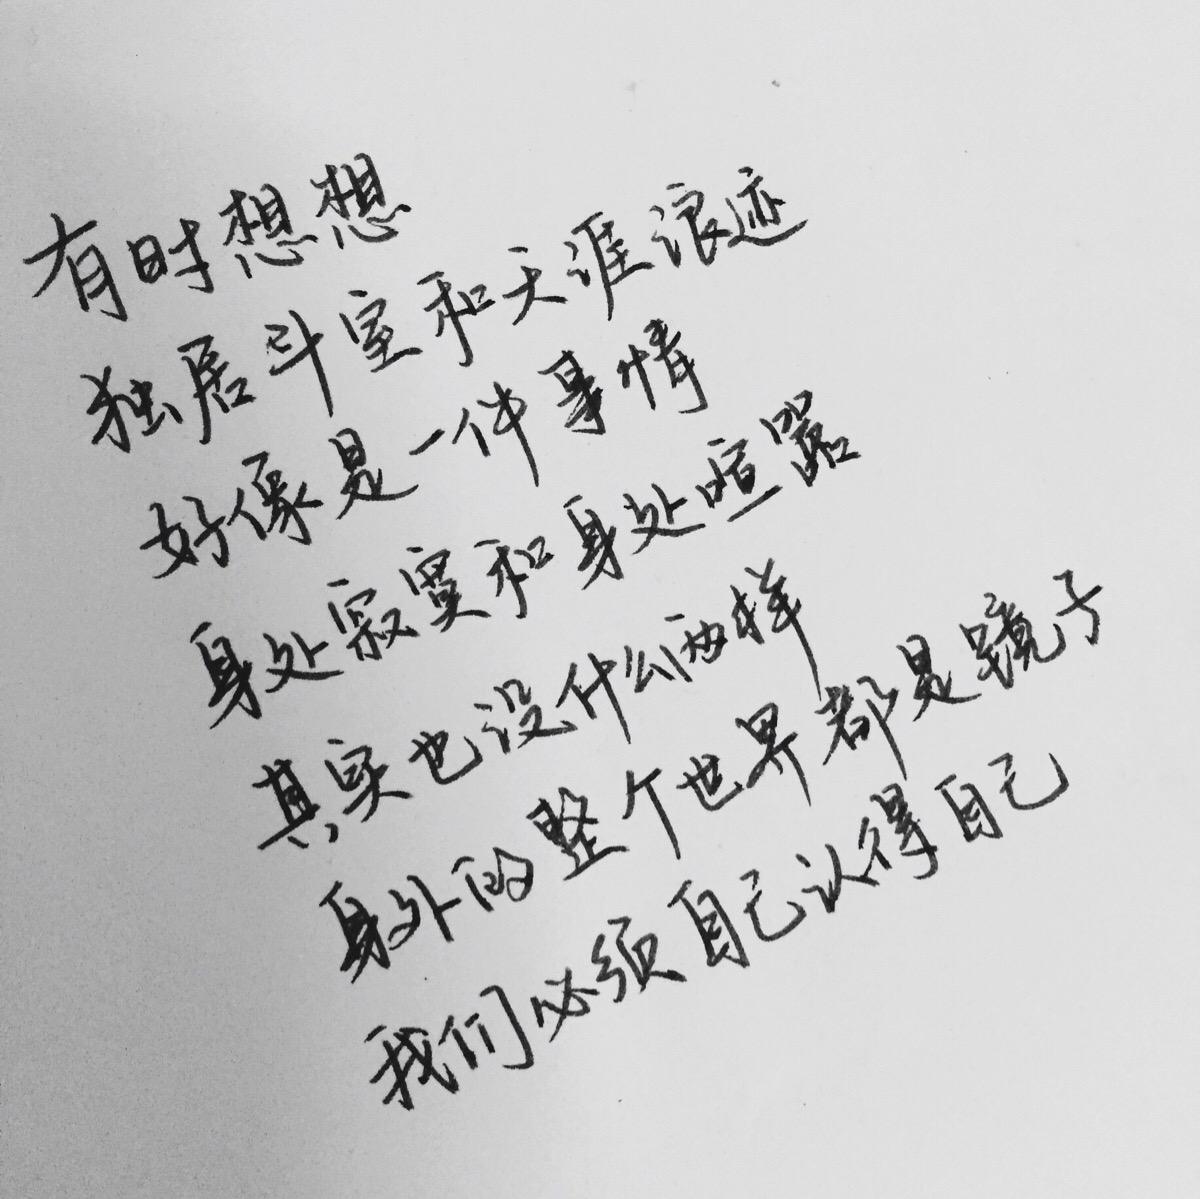 有时想想
独居斗室和天涯浪迹
好像是一件事情
身处寂寞和身处喧嚣
其实也没什么两样
身外的整个世界都是镜子
我们必须自己认得自己